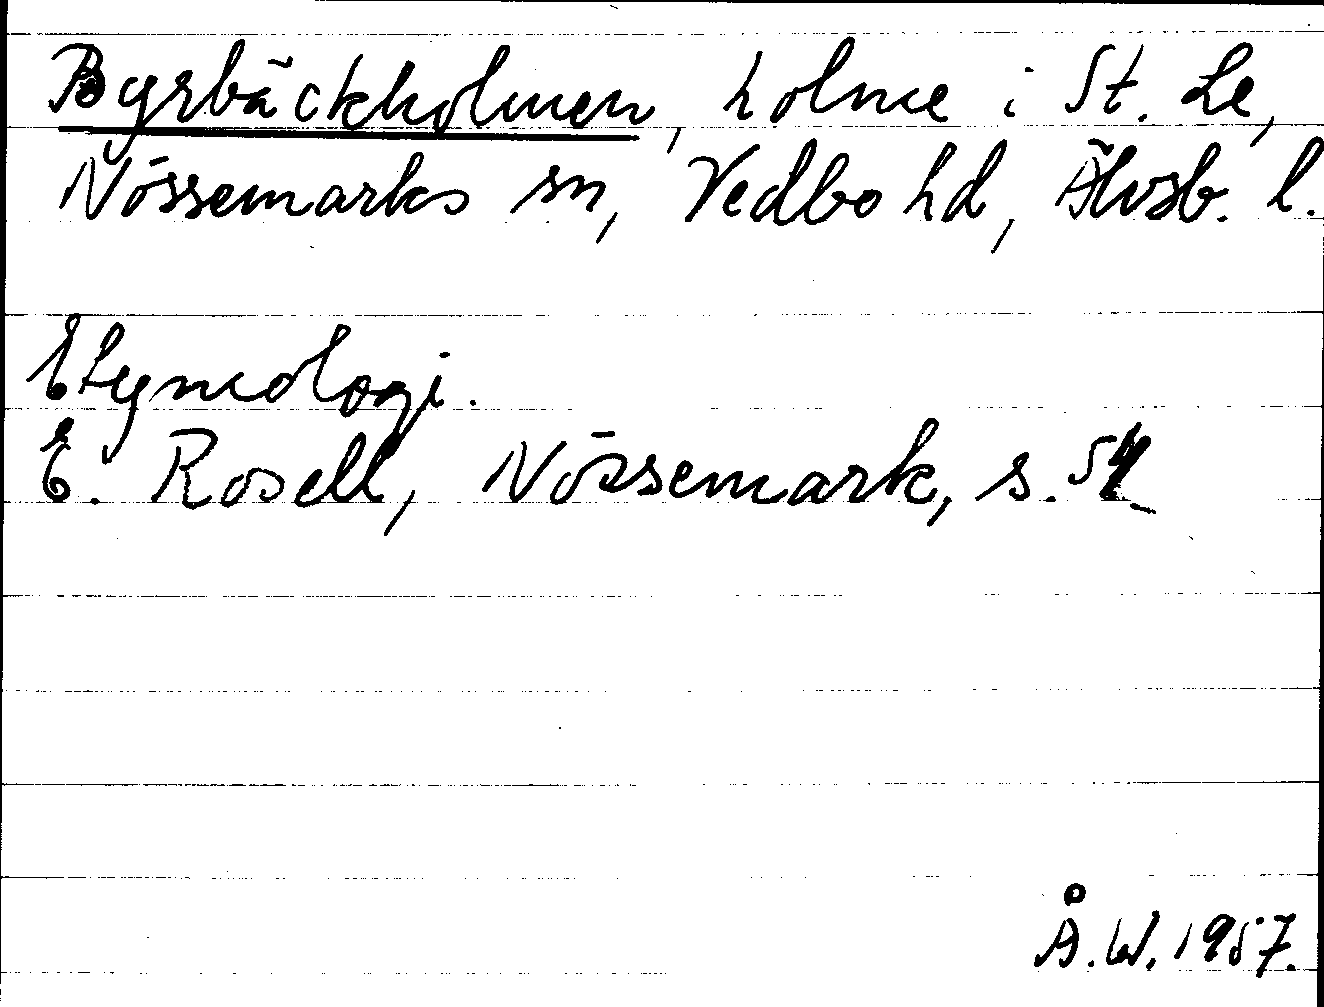 Byrbäckholmen, holme i St. Le,
Nössemarks sn, Vedbo hd, Älvsb. l.
Etymologi.
E. Rosell, Nössemark, s. 54
Å.W. 1957.